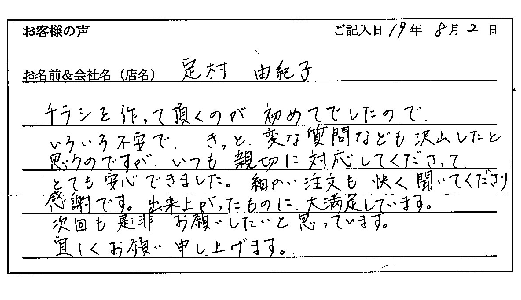 お客様の声 ご記入日 19年 8月 2日
お名前&会社名（店名） 足村 由紀子
チラシを作って頂くのが 初めてでしたので、
いろいろ不安で、きっと、変な質問なども沢山したと
思うのですが、いつも 親切に対応してくださって
とても安心できました。細かい注文も 快く聞いてくださり
感謝です。出来上がったものに、大満足しています。
次回も是非 お願いしたいと思っています。
宜しくお願い申し上げます。